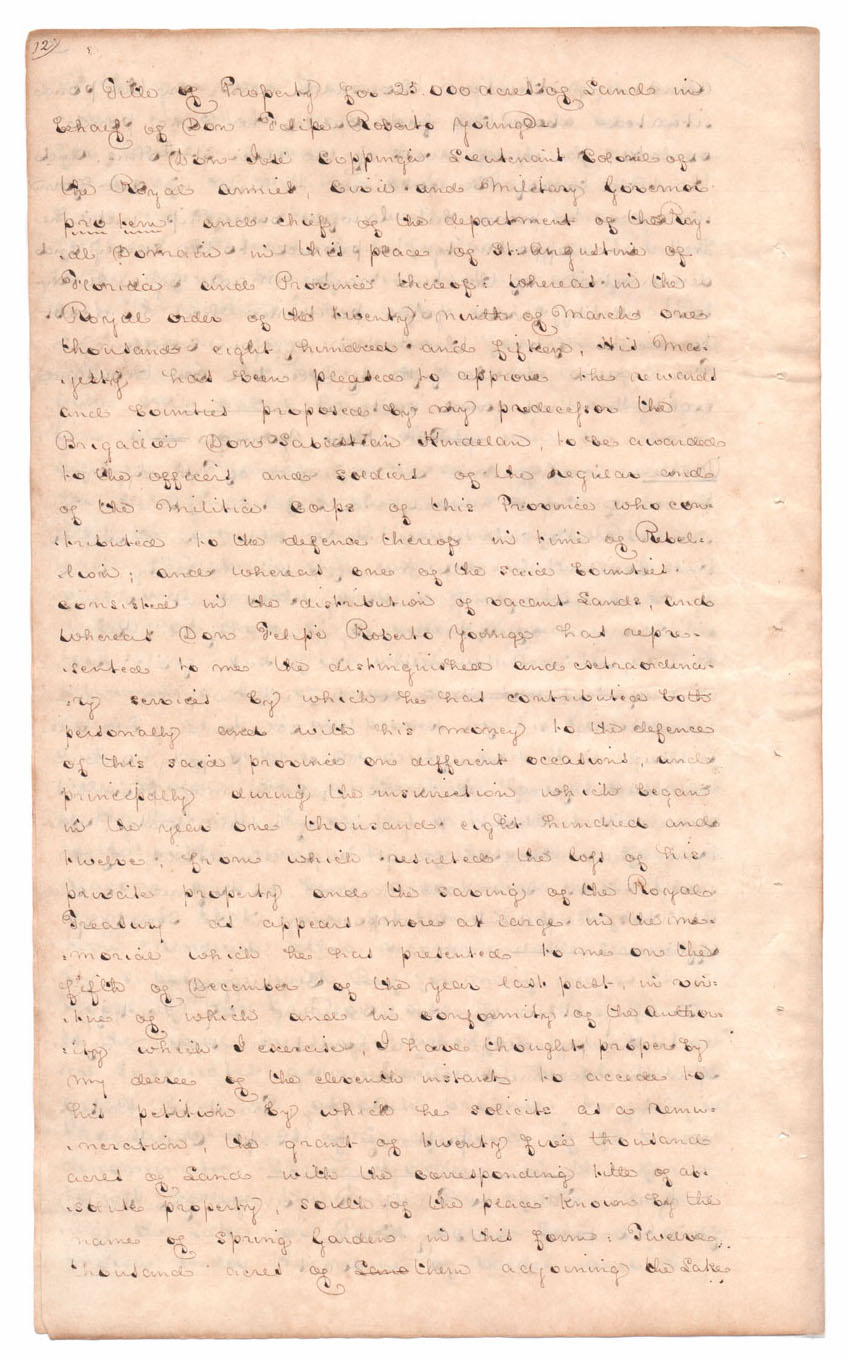 12)
Title of Property for 25.000 acres of Lands in
behalf of Don Felipe Roberto Younge
Don Jose Coppinger Lieutenant Colonel of
the Royal armies, Civil and Military Governor
pro tem and chief of the department of the Roy-
al Domain in this place of St. Augustine of
Florida and Province thereof: whereas in the
Royal order of the twenty ninth of March one
thousand eight hundred and fifteen, His Ma-
:jesty has been pleased to approve the rewards
and bounties proposed by my predecessor the
Brigadier Don Sabastian Kindelan, to be awarded
to the officers and soldiers of the regular and
of the Militia Corps of this Province who con-
:tributed to the defence thereof in time of Rebel-
:lion; and whereas, one of the said bounties
consisted in the distribution of vacant Lands, and
whereas Don Felipe Roberto Younge has repre-
:sented to me the distinguished and extraordina-
:ry services by which he has contributed both
personally and with his money to the defence
of this said province on different occasions, and
principally during the insurrection which began
in the year one thousand eight hundred and
twelve; from which resulted the loss of his
private property and the saving of the Royal
Treasury as appears more at large in the me-
:morial which he has presented to me on the
fifth of December of the year last past, in vir-
:tue of which and in conformity of the author-
:ity which I exercise, I have thought proper by
my decree of the eleventh instant to accede to
his petition by which he solicits as a remu-
:neration, the grant of twenty five thousand
acres of Land with the corresponding title of ab-
:solute property, south of the place known by the
name of Spring Garden in this form: Twelve
thousand acres of Land them adjoining the Lake